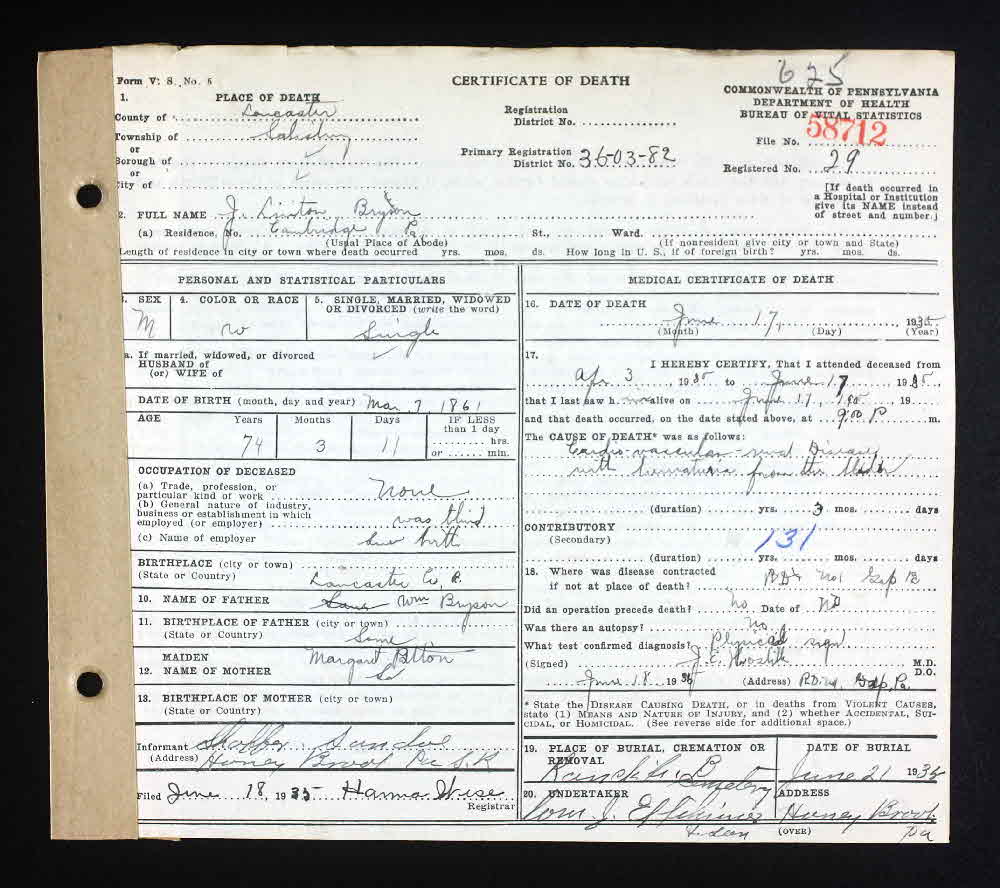 625
Form V. S. No. 5
CERTIFICATE OF DEATH
COMMONWEALTH OF PENNSYLVANIA
DEPARTMENT OF HEALTH
BUREAU OF VITAL STATISTICS
1. PLACE OF DEATH
County of Lancaster
Township of Salisbury
or
Borough of
or
City of
Registration District No.
Primary Registration District No. 36-03-82
File No. 58712
Registered No. 29
[If death occurred in a Hospital or Institution give its NAME instead of street and number.]
2. FULL NAME J. Linton Bryson
(a) Residence, No. Cambridge Pa. St., Ward.
(Usual Place of Abode) (If nonresident give city or town and State)
Length of residence in city or town where death occurred yrs. mos. ds. How long in U. S., if of foreign birth? yrs. mos. ds.
PERSONAL AND STATISTICAL PARTICULARS
3. SEX M
4. COLOR OR RACE W
5. SINGLE, MARRIED, WIDOWED OR DIVORCED (write the word) Single
a. If married, widowed, or divorced
HUSBAND of
(or) WIFE of
DATE OF BIRTH (month, day and year) Mar. 7, 1861
AGE Years Months Days IF LESS than 1 day
74 3 11 hrs. or min.
OCCUPATION OF DECEASED
(a) Trade, profession, or particular kind of work None
(b) General nature of industry, business or establishment in which employed (or employer) was blind
(c) Name of employer birth
BIRTHPLACE (city or town)
(State or Country) Lancaster Co.
10. NAME OF FATHER Wm Bryson
11. BIRTHPLACE OF FATHER (city or town)
(State or Country) Same
MAIDEN
12. NAME OF MOTHER Margaret
13. BIRTHPLACE OF MOTHER (city or town)
(State or Country)
Informant
(Address) Honey Brook
Filed June 18, 1935 Hanna Wise
Registrar
MEDICAL CERTIFICATE OF DEATH
16. DATE OF DEATH
June 17, 1935
(Month) (Day) (Year)
17. I HEREBY CERTIFY, That I attended deceased from
Apr 3 1935 to June 17 1935
that I last saw h alive on June 17, 19
and that death occurred, on the date stated above, at 9:00 P m.
The CAUSE OF DEATH* was as follows:
Cardio-vascular-renal Disease
with hematuria from the bladder
(duration) yrs. 3 mos. days
CONTRIBUTORY
(Secondary) 131
(duration) yrs. mos. days
18. Where was disease contracted
if not at place of death? No1 Gap
Did an operation precede death? No Date of No
Was there an autopsy? No
What test confirmed diagnosis? Physical sign
(Signed) J. E. M.D.
D.O.
June 18 1935 (Address) Gap, Pa.
* State the DISEASE CAUSING DEATH, or in deaths from VIOLENT CAUSES, state (1) MEANS AND NATURE OF INJURY, and (2) whether ACCIDENTAL, SUICIDAL, or HOMICIDAL. (See reverse side for additional space.)
19. PLACE OF BURIAL, CREMATION OR REMOVAL
Cemetery
DATE OF BURIAL
June 21 1935
20. UNDERTAKER
Wm. J.
ADDRESS
Honey Brook
Pa
(OVER)